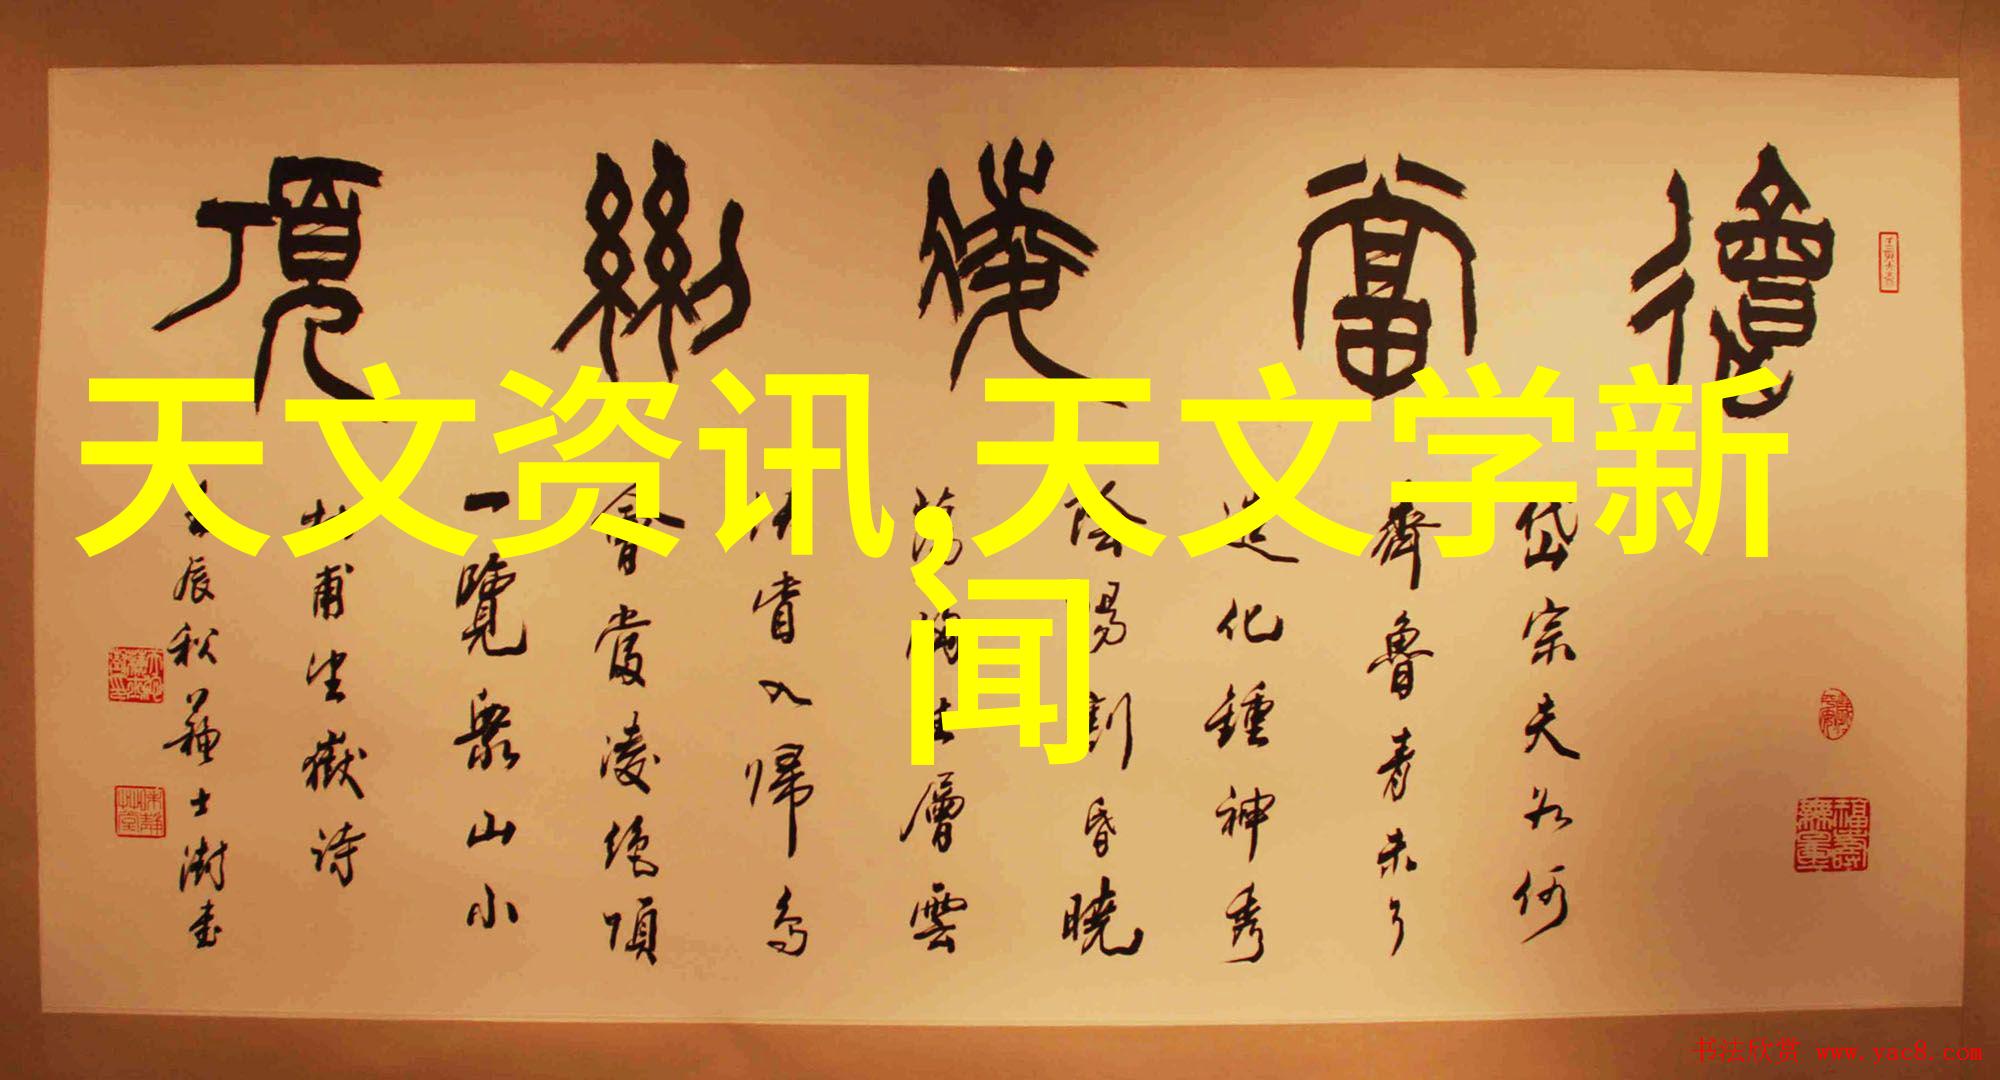 會當凌絕頂
天文资讯,天文学新
闻
岱宗夫如何
齊魯青未了
造化鍾神秀
陰陽割昏曉
蕩胸生層雲
決眥入歸鳥
會當凌絕頂
一覽眾山小
杜甫望嶽詩
壬辰秋蘇士澍書
福壽無量
书法欣赏 www.yac8.com